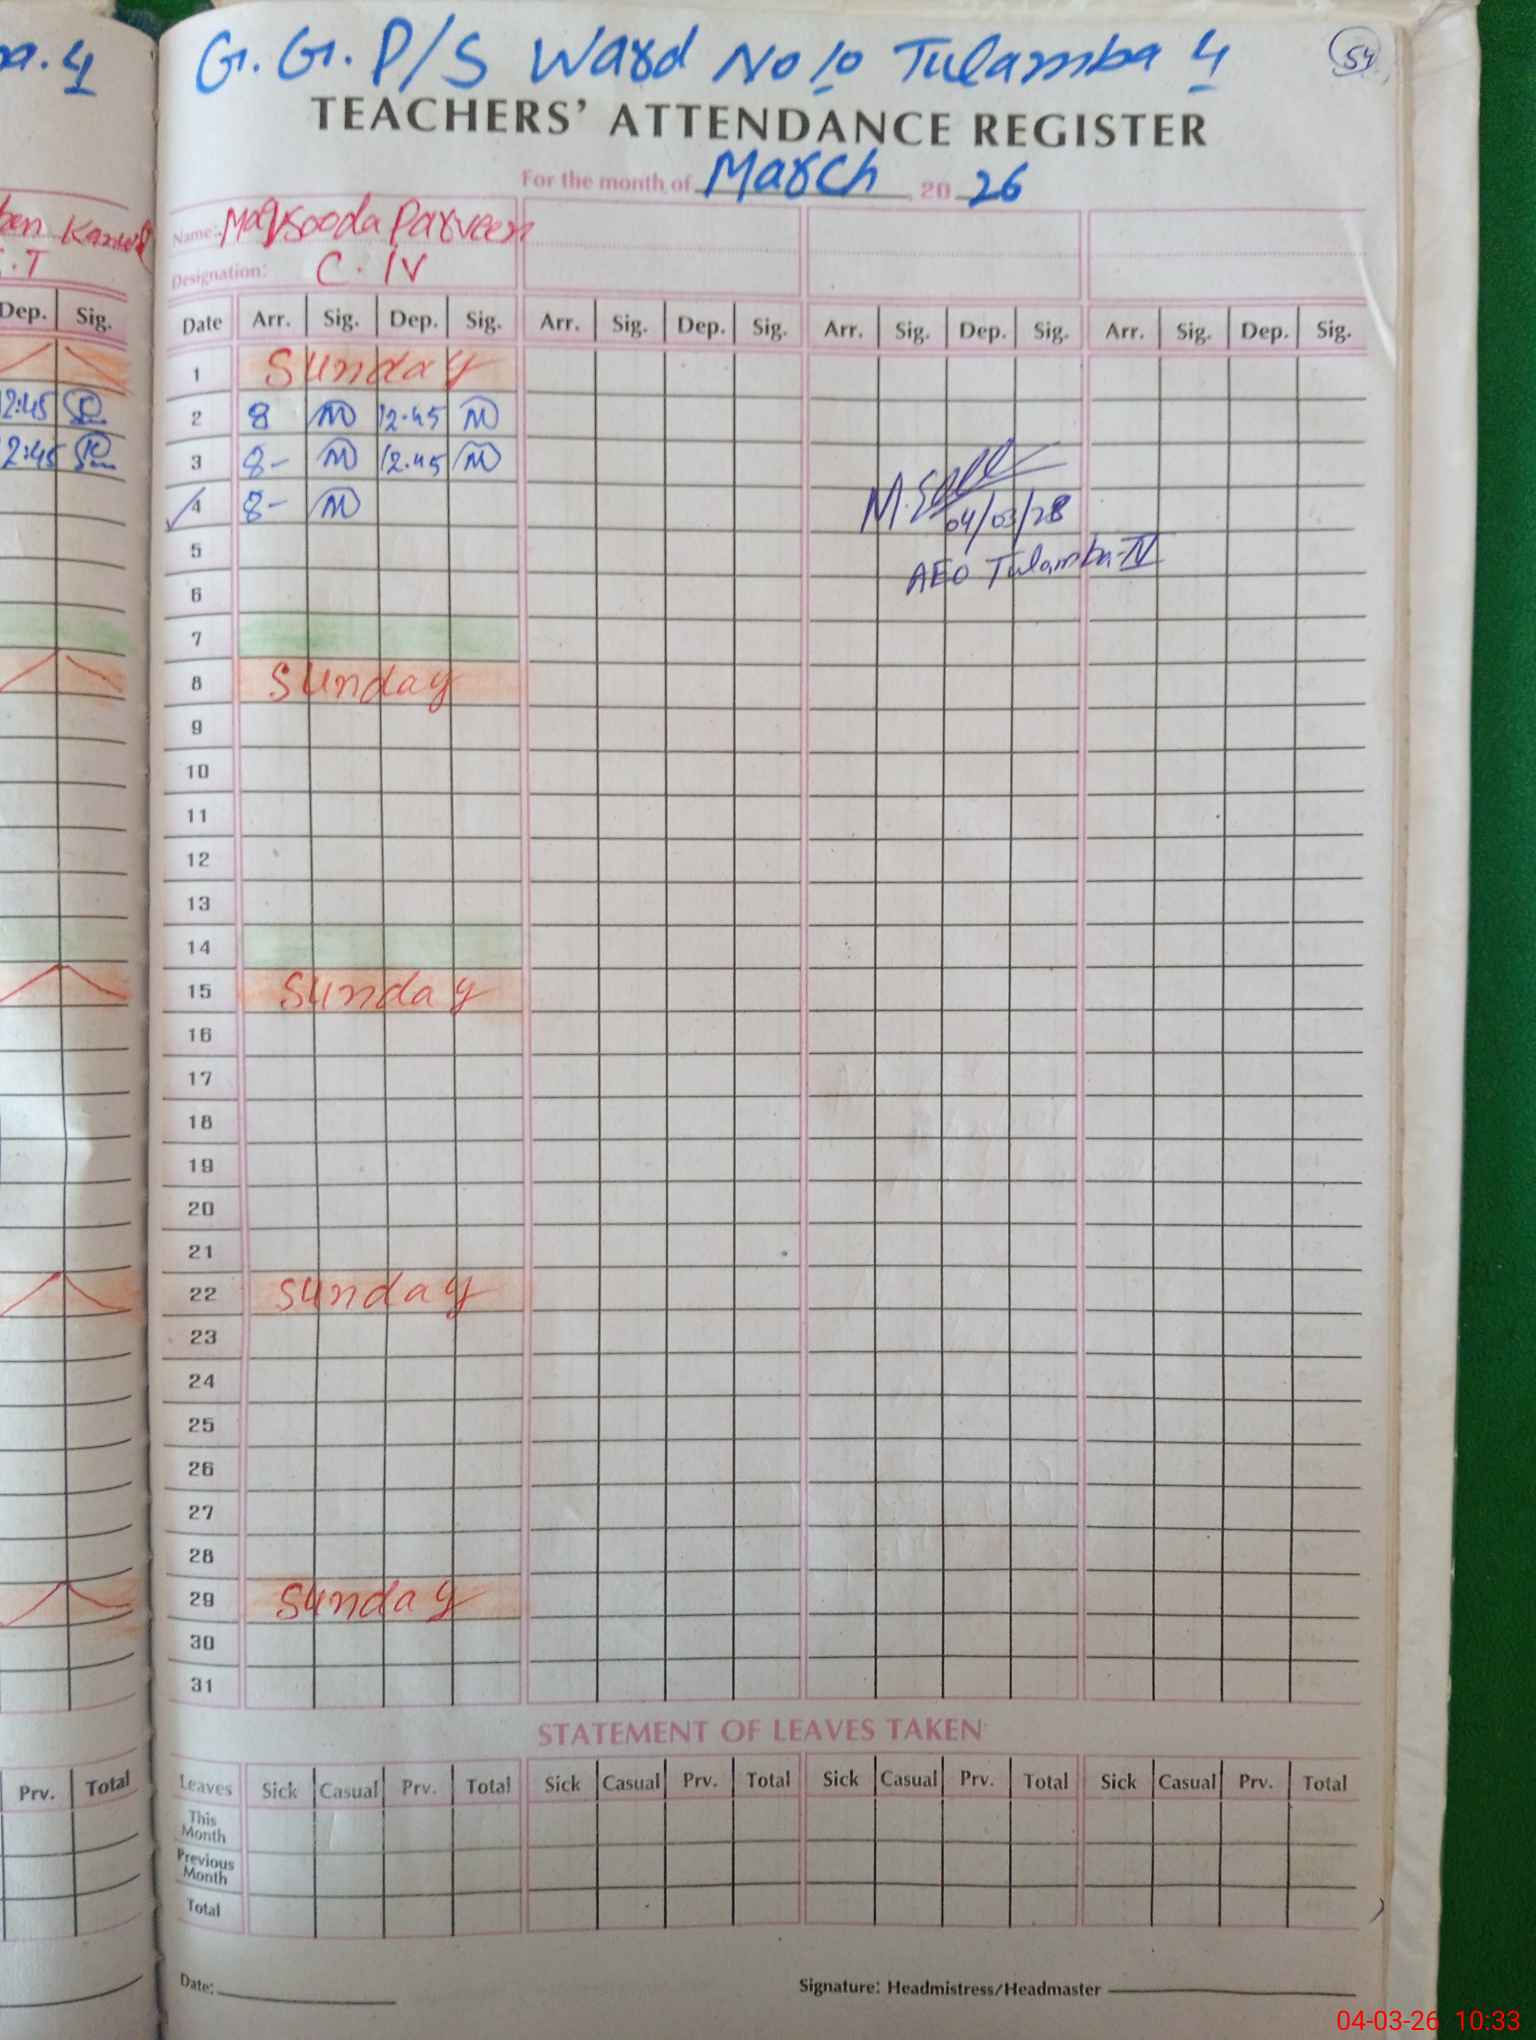 G. G. P/S Ward No 10 Tulamba 4
54
TEACHERS' ATTENDANCE REGISTER
For the month of March 2026
Name: Maqsooda Parveen
Designation: C. IV
Date Arr. Sig. Dep. Sig. Arr. Sig. Dep. Sig. Arr. Sig. Dep. Sig. Arr. Sig. Dep. Sig.
1 Sunday
2 8 M 12.45 M
3 8- M 12.45 M
4 8- M
04/03/28
AEO Tulamba-IV
5
6
7
8 Sunday
9
10
11
12
13
14
15 Sunday
16
17
18
19
20
21
22 Sunday
23
24
25
26
27
28
29 Sunday
30
31
STATEMENT OF LEAVES TAKEN
Leaves Sick Casual Prv. Total Sick Casual Prv. Total Sick Casual Prv. Total Sick Casual Prv. Total
This Month
Previous Month
Total
Date:
Signature: Headmistress/Headmaster
a. 4
Dep. Sig.
2:45
2:45
Prv. Total
04-03-26 10:33